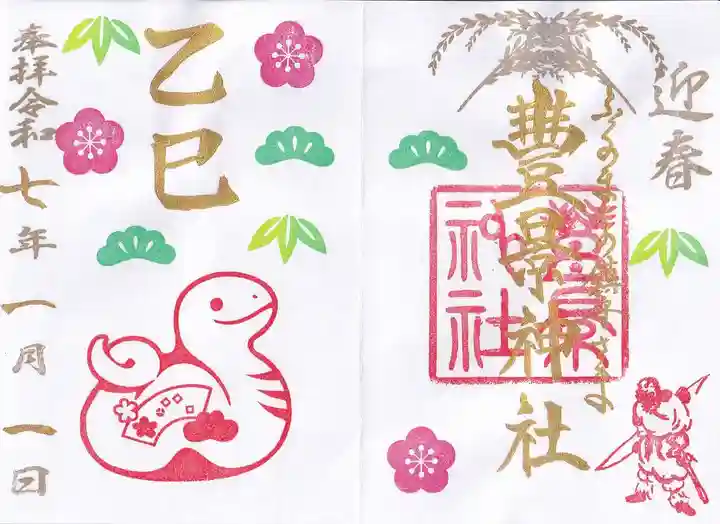 迎春
ふくのま
鎮守さま
豊景神社
乙巳
奉拝令和七年一月一日